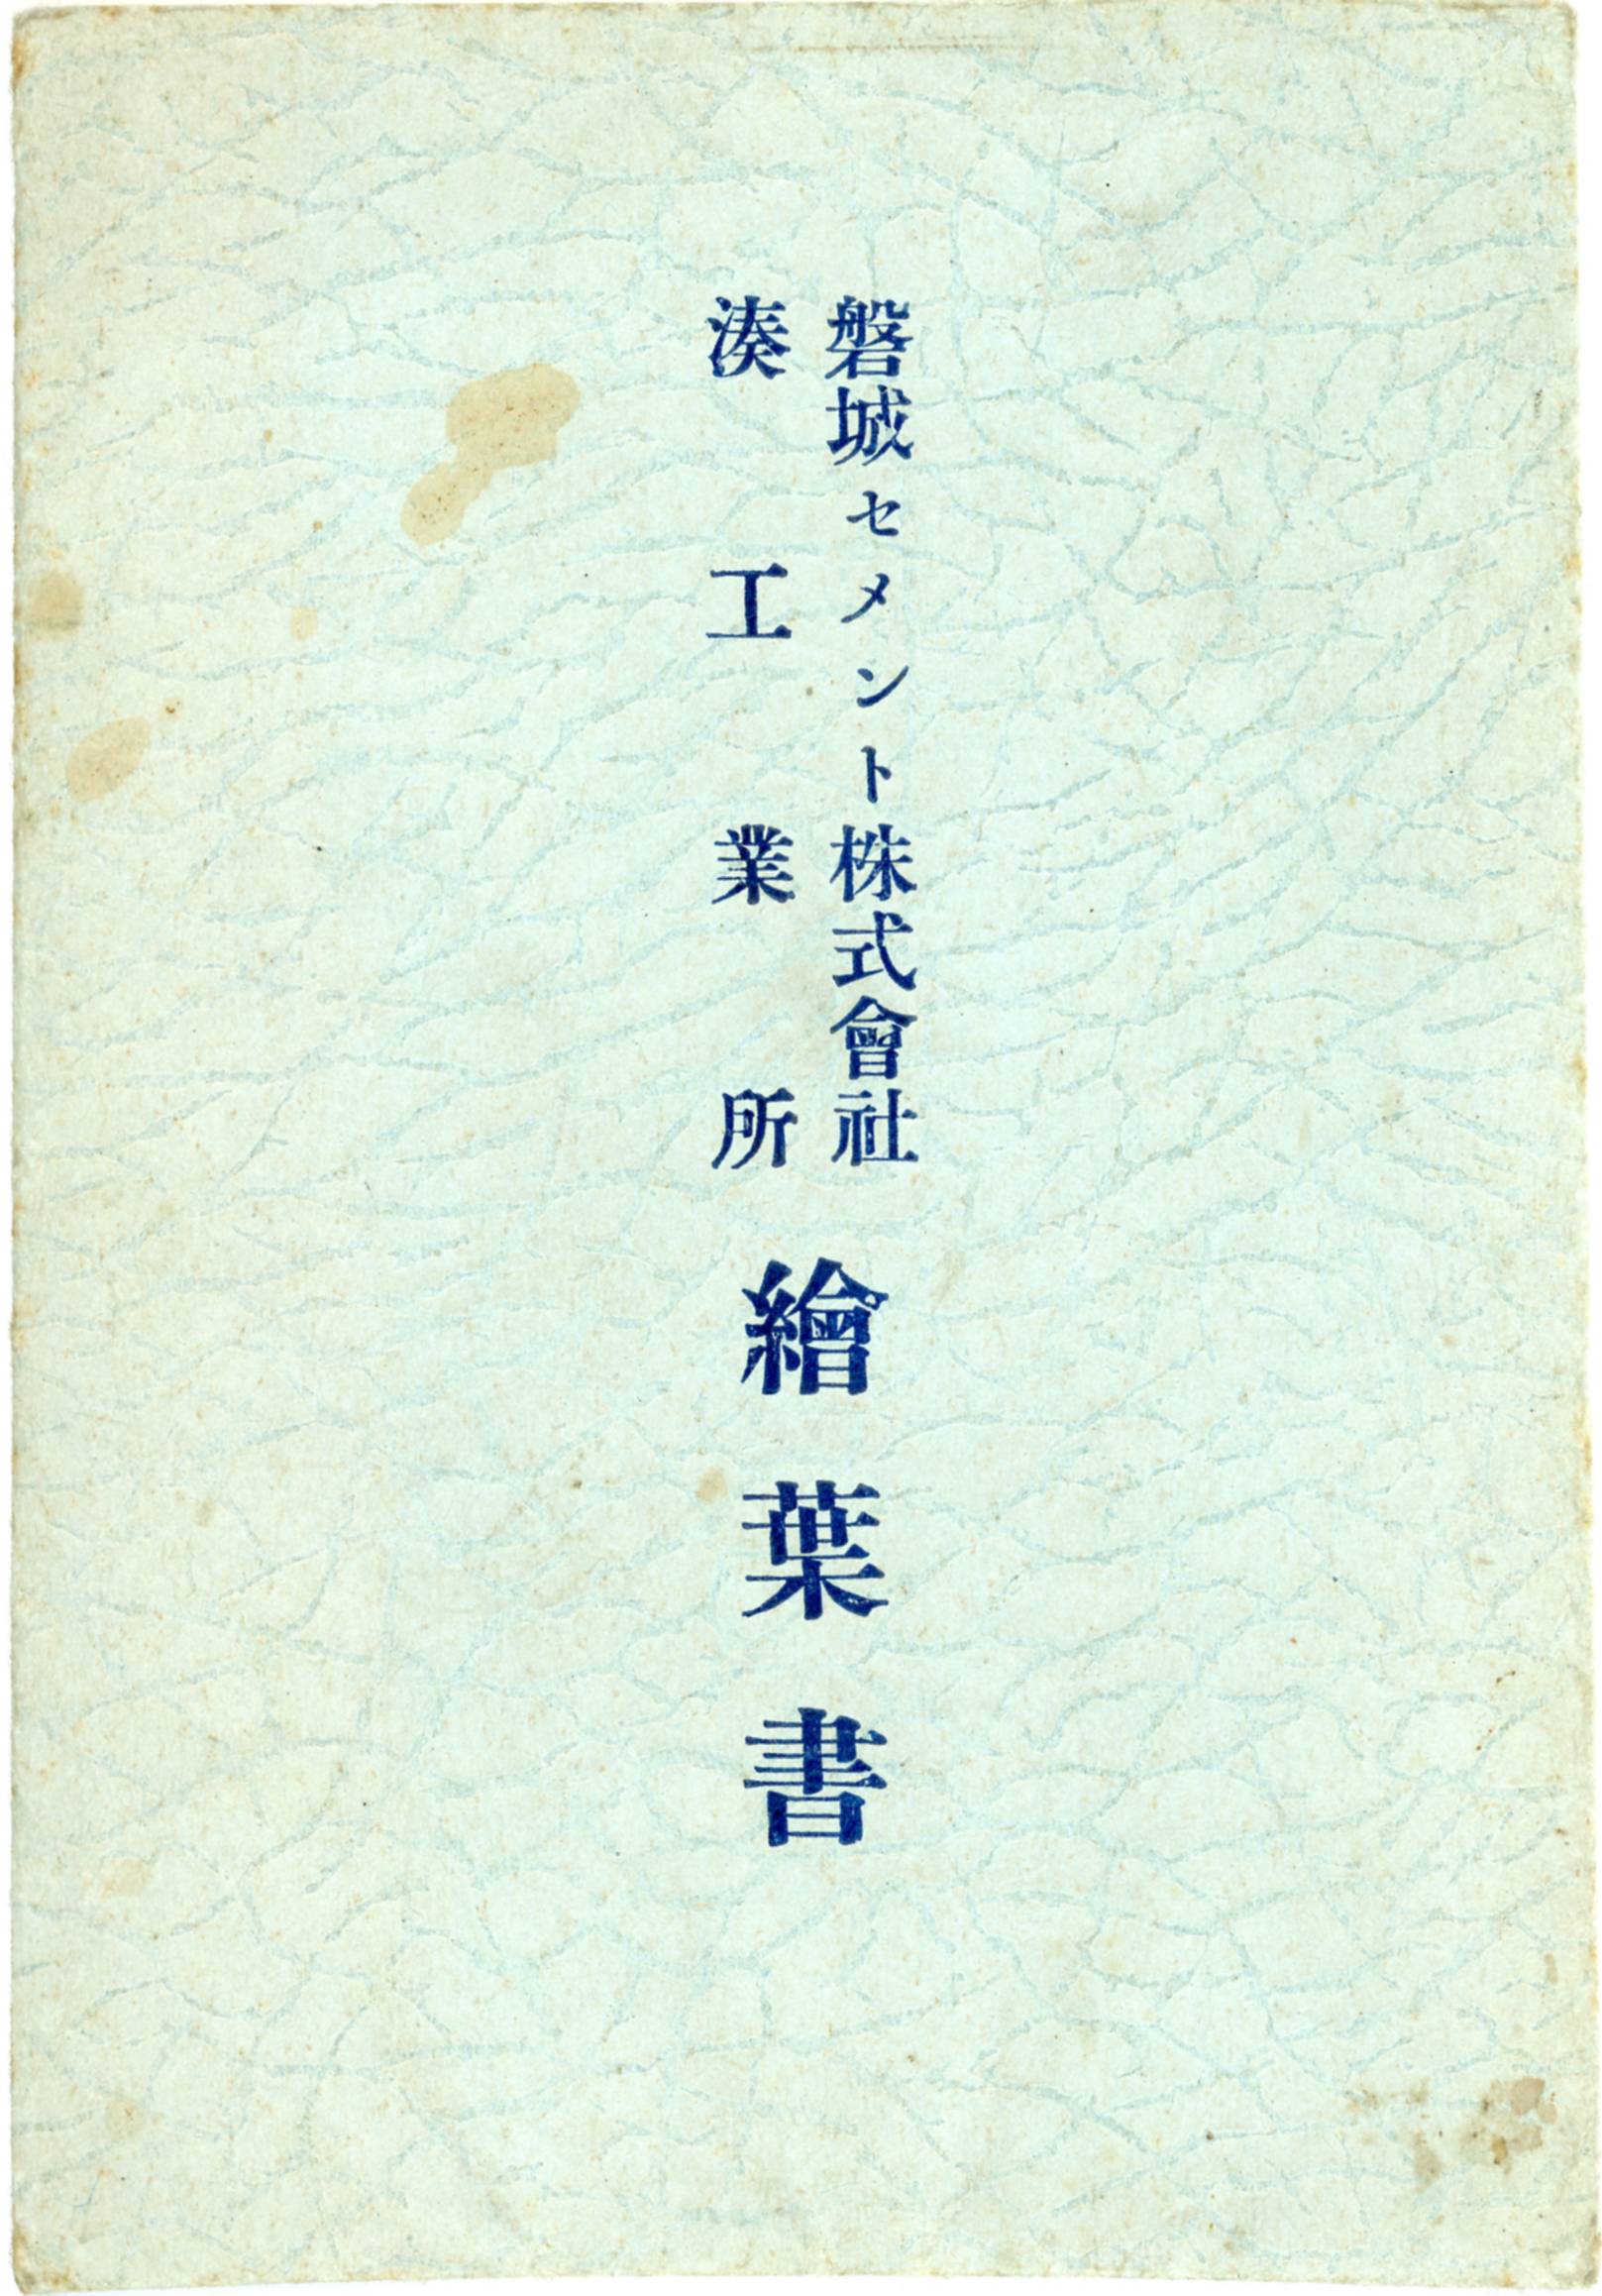 磐城セメント株式會社
湊工業所
繪葉書